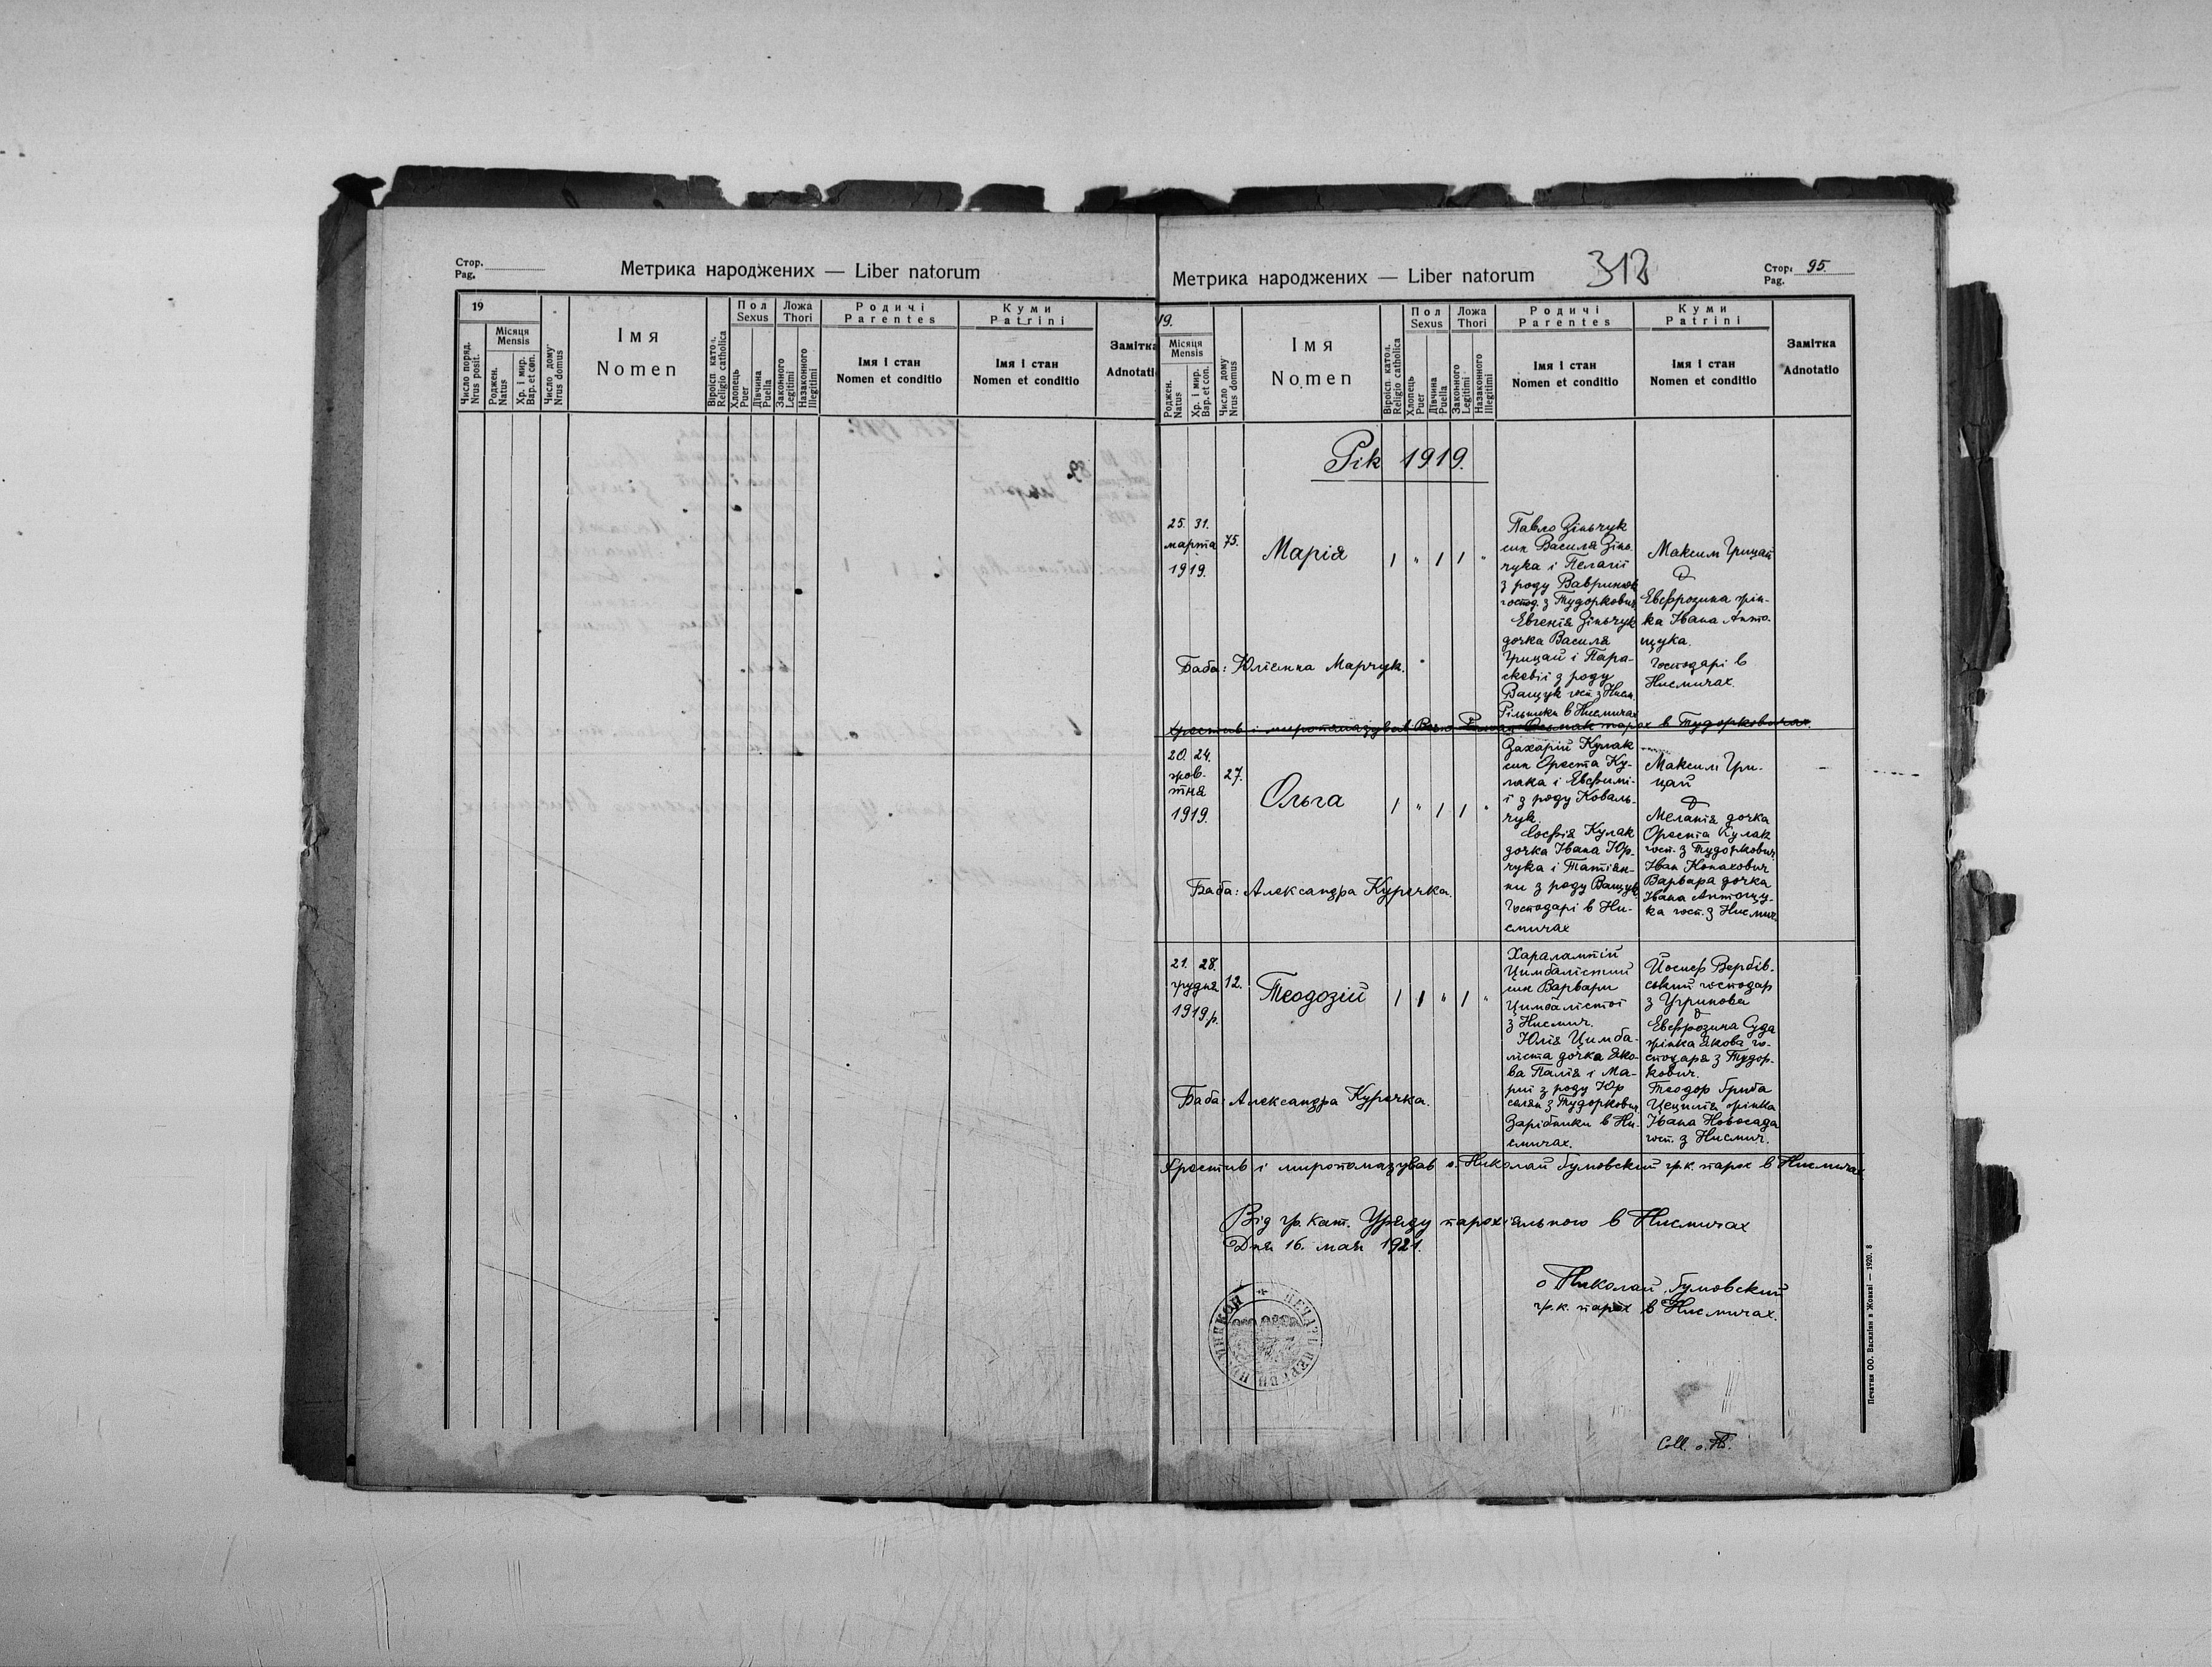 Стор.
Pag.
Метрика народжених — Liber natorum
19
Число поряд.
Nrus posit.
Місяця
Mensis
Роджен.
Natus
Хр. і мир.
Bap. et con.
Число дому
Nrus domus
Імя
Nomen
Віроісп. катол.
Religio catholica
Пол
Sexus
Хлопець
Puer
Дівчина
Puella
Ложа
Thori
Законного
Legitimi
Незаконного
Illegitimi
Родичі
Parentes
Імя і стан
Nomen et conditio
Куми
Patrini
Імя і стан
Nomen et conditio
Замітка
Adnotatio
Метрика народжених — Liber natorum
312
Стор. 95.
Pag.
19.
Місяця
Mensis
Роджен.
Natus
Хр. і мир.
Bap. et con.
Число дому
Nrus domus
Імя
Nomen
Віроісп. катол.
Religio catholica
Пол
Sexus
Хлопець
Puer
Дівчина
Puella
Ложа
Thori
Законного
Legitimi
Незаконного
Illegitimi
Родичі
Parentes
Імя і стан
Nomen et conditio
Куми
Patrini
Імя і стан
Nomen et conditio
Замітка
Adnotatio
Рік 1919.
25. 31.
марта
1919.
75.
Марія
Павло Зіньчук
син Василя Зінь-
чука і Пелагії
з роду Вавринюк
господ. з Тудоркович
Евгенія Зіньчук
дочка Василя
Грицай і Пара-
скевії з роду
Ващук госп. з Нисм.
Рільники в Нисмичах
Максим Грицай
Евфрозина жін-
ка Івана Анто-
щука.
Господарі в
Нисмичах.
Баба: Юліянна Марчук.
Хрестив і миропомазував парох в Тудорковичах.
20. 24.
жов-
тня
1919.
27.
Ольга
Захарій Кулак
син Ореста Ку-
лака і Евфимі-
ї з роду Коваль-
чук.
Софія Кулак
дочка Івана Юр-
чука і Татіян-
ни з роду Ващук
Господарі в Ни-
смичах
Максим Гри-
цай
Меланія дочка
Ореста Кулак
госп. з Тудоркович
Іван Конахович
Варвара дочка
Івана Антощу-
ка госп. з Нисмич
Баба: Александра Курочка.
21. 28.
грудня
1919.р.
12.
Теодозій
Харалампій
Цимбалістий
син Варвари
Цимбалістої
з Нисмич.
Юлія Цимба-
ліста дочка Яко-
ва Палія і Ма-
рії з роду Юр
селян з Тудоркович
Зарібники в Ни-
смичах.
Йосиф Вербів-
ський господар
з Угринова
Евфрозина Суда
жінка Якова го-
сподаря з Тудор-
кович.
Теодор Грита
Цецилія жінка
Івана Новосада
госп. з Нисмич.
Баба: Александра Курочка.
Хрестив і миропомазував о. Николай Гумовский гр.к. парох в Нисмичах
Від гр. кат. Уряду парохіяльного в Нисмичах
Дня 16. мая 1921.
о Николай Гумовский
гр.к. парох в Нисмичах.
Coll. о.
Печатня ОО. Василіян в Жовкві — 1920. 8